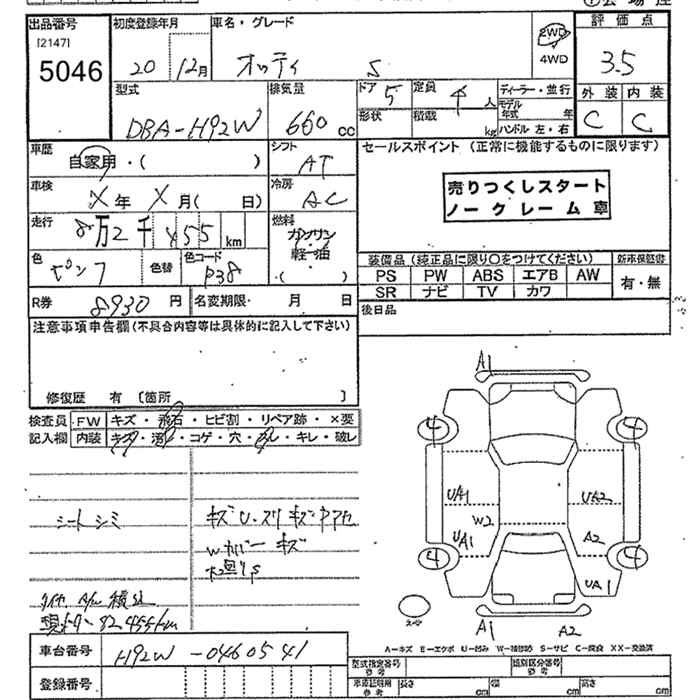 出品番号 初度登録年月 車名・グレード 2WD 評価点
[2147]
5046 20 12月 オッティ S 4WD 3.5
型式 排気量 ドア 5 定員 4 人 ディーラー・並行 外装 内装
DBA-H92W 660 cc 形状 積載 kg モデル年式 年 C C
ハンドル 左・右
車歴 自家用・( ) シフト AT セールスポイント (正常に機能するものに限ります)
車検 X 年 X 月( 日) 冷房 AC 売りつくしスタート
ノークレーム車
走行 8万2千455 km 燃料 ガソリン・軽・油・( )
色 ピンク 色替 色コード P38 装備品(純正品に限り○をつけてください) 新車保証書
PS PW ABS エアB AW 有・無
SR ナビ TV カワ
R券 8930 円 名変期限・ 月 日 後日品
注意事項申告欄(不具合内容等は具体的に記入して下さい)
修復歴 有 [箇所 ]
検査員 FW キズ・飛石・ヒビ割・リペア跡・×要
記入欄 内装 キズ・汚レ・コゲ・穴・カレ・キレ・破レ
シートシミ
Wカバー キズ
現メーター 82455km
A1
4 4
UA1 UA2
W2
UA1 A2
4 4
UA1
スペア
A1 A2
A=キズ E=エクボ U=凹み W=補修跡 S=サビ C=腐食 XX=交換済
車台番号 H92W-0460541
登録番号
型式指定番号 参考 類別区分番号 参考
車庫証明用 参考 長さ cm 幅 cm 高さ cm